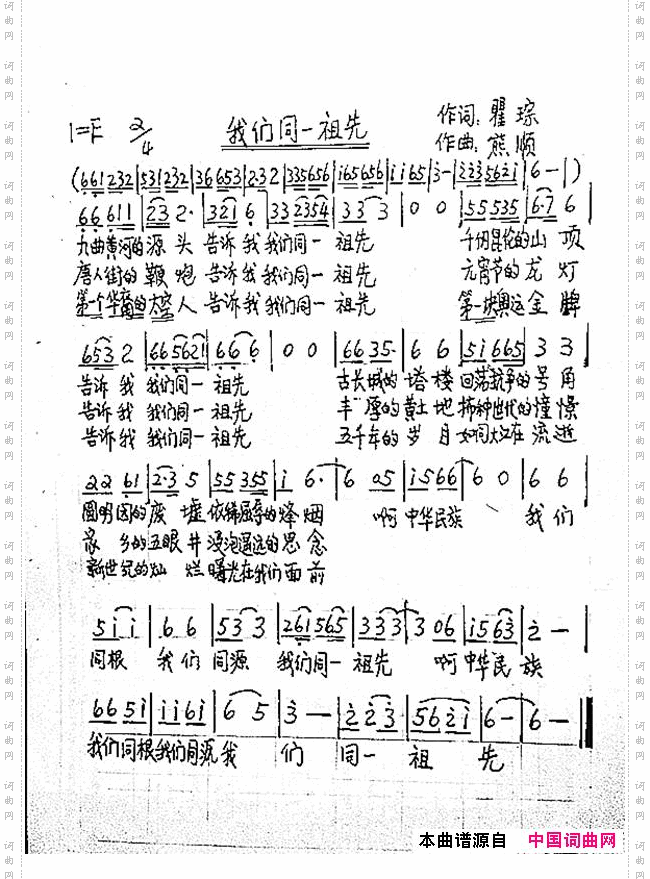 1=F 2/4 我们同一祖先 作词: 瞿琮
作曲: 熊顺
(661232|531232|36653|232|335656|165656|1165|3-|2235621|6-|)
66611|232·|3216|332354|333|00|55535|6·76
九曲黄河的源头 告诉我 我们同一 祖先 千仞昆伦的山顶
唐人街的鞭炮 告诉我 我们同一 祖先 元宵节的龙灯
第一个华裔的太空人 告诉我 我们同一 祖先 第一块奥运金牌
6532|665621|666|00|6635·|66|51665|33
告诉我 我们同一 祖先 古长城的塔楼 回荡抗争的号角
告诉我 我们同一 祖先 丰厚的黄土地 播种世代的憧憬
告诉我 我们同一 祖先 五千年的岁月 如同大江在流逝
2261|2·35|55355|16·|605|1566|60|66
圆明园的废墟 依稀屈辱的烽烟 啊 中华民族 我们
家乡的五眼井 浸泡遥远的思念
新世纪的灿烂 曙光在我们面前
511|66|533|261565|333|306|1563|2-
同根 我们同源 我们同一 祖先 啊 中华民族
6651|1161|65|3-|223|5621|6-|6-
我们同根 我们同源 我们同一祖先
本曲谱源自 中国词曲网
词曲网